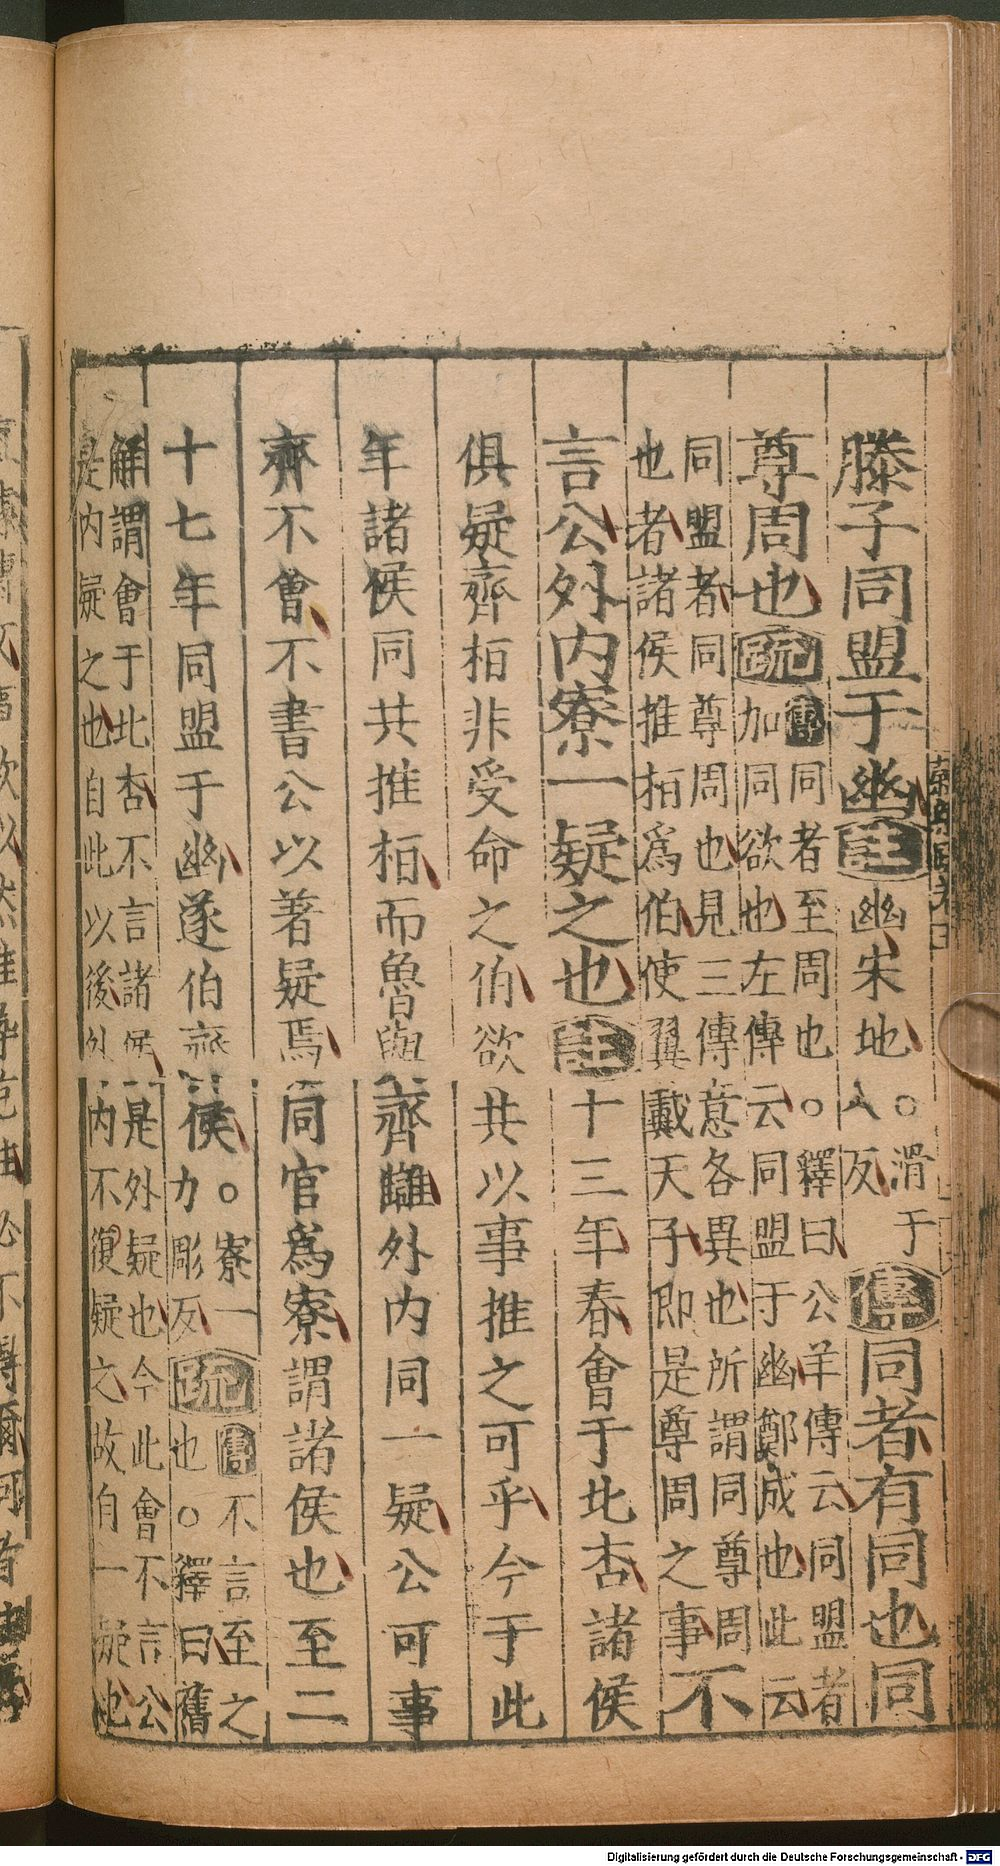 滕子同盟于幽註幽宋地○滑于
八反傳同者有同也同
尊周也疏傳同者至周也○釋曰公羊傳云同盟者
加同欲也左傳云同盟于幽鄭成也此云
同盟者同尊周也見三傳意各異也所謂同尊周
也者諸侯推桓爲伯使翼戴天子即是尊周之事不
言公外内寮一疑之也註十三年春會于北杏諸侯
俱疑齊桓非受命之伯欲共以事推之可乎今于此
年諸侯同共推桓而魯與齊讎外内同一疑公可事
齊不會不書公以著疑焉同官爲寮謂諸侯也至二
十七年同盟于幽遂伯齊侯○寮一
力彫反疏傳不言至之
也○釋曰舊
解謂會于北杏不言諸侯是外疑也今此會不言公
是内疑之也自此以後外内不復疑之故自一疑也
Digitalisierung gefördert durch die Deutsche Forschungsgemeinschaft - DFG